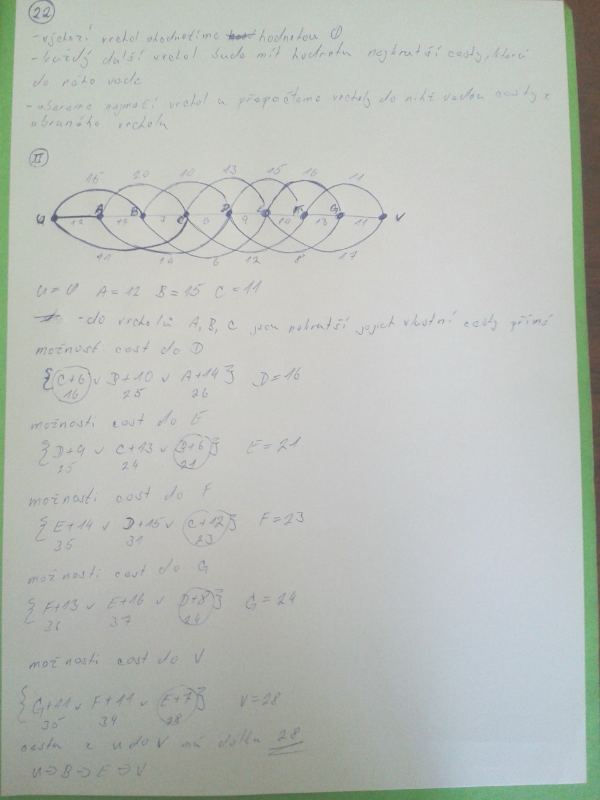 22
- výchozí vrchol ohodnotíme hodnotou 0
- každý další vrchol bude mít hodnotu nejkratší cesty, která
do něho vede
- vrchol a přepočteme vrcholy do nichž vedou cesty z
vybraného vrcholu
II
15 20 10 13 15 16 11
U A B C D E F G V
12 9 13 11
11 14 6 12 8 17
U = 0 A = 12 B = 15 C = 11
- do vrcholů A, B, C jsou nejkratší jejich vlastní cesty přímé
možnosti cest do D
{C+6 v B+10 v A+14} D = 16
16 25 26
možnosti cest do E
{D+9 v C+13 v B+6} E = 21
25 24 21
možnosti cest do F
{E+14 v D+15 v C+12} F = 23
35 31 23
možnosti cest do G
{F+13 v E+16 v D+8} G = 24
36 37 24
možnosti cest do V
{G+11 v F+11 v E+7} V = 28
35 34 28
cesta z u do v má délku 28
U → B → E → V